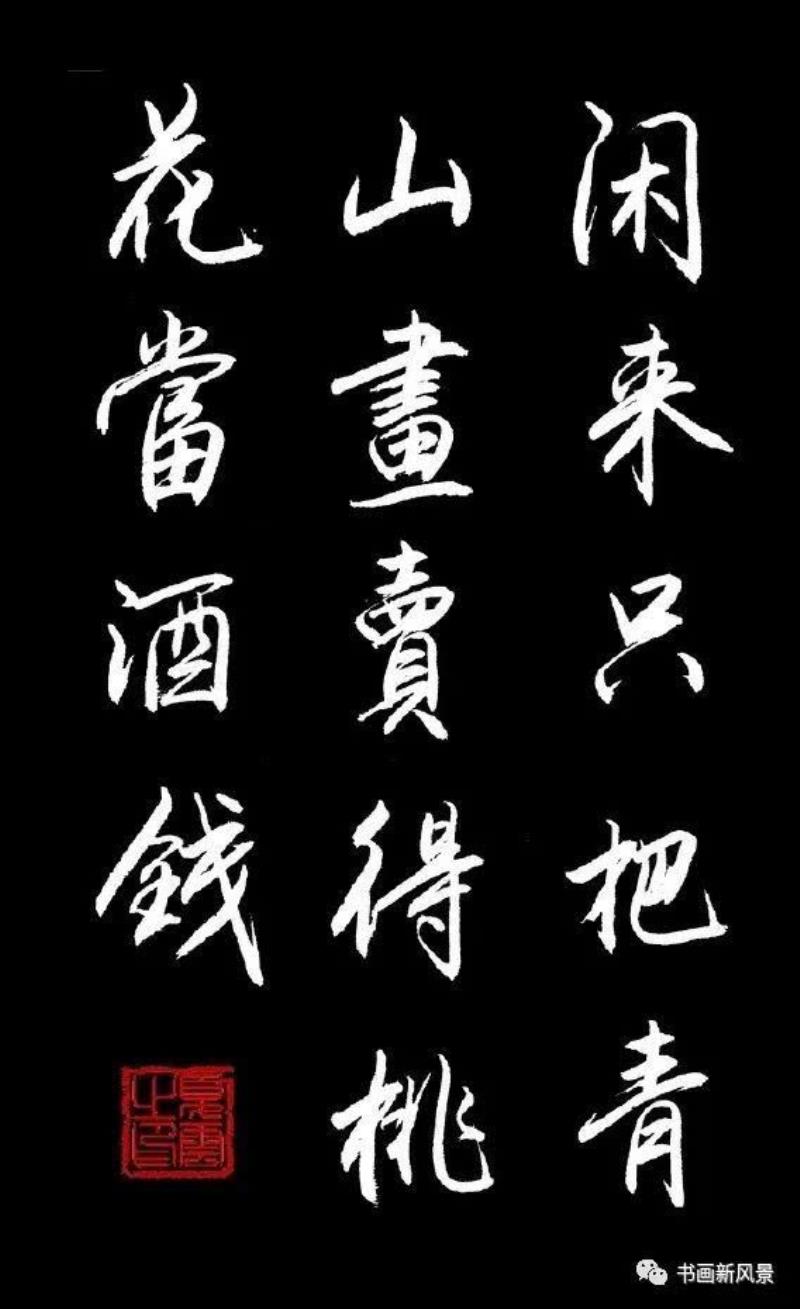 闲来只把青
山畫賣得桃
花當酒錢
书画新风景